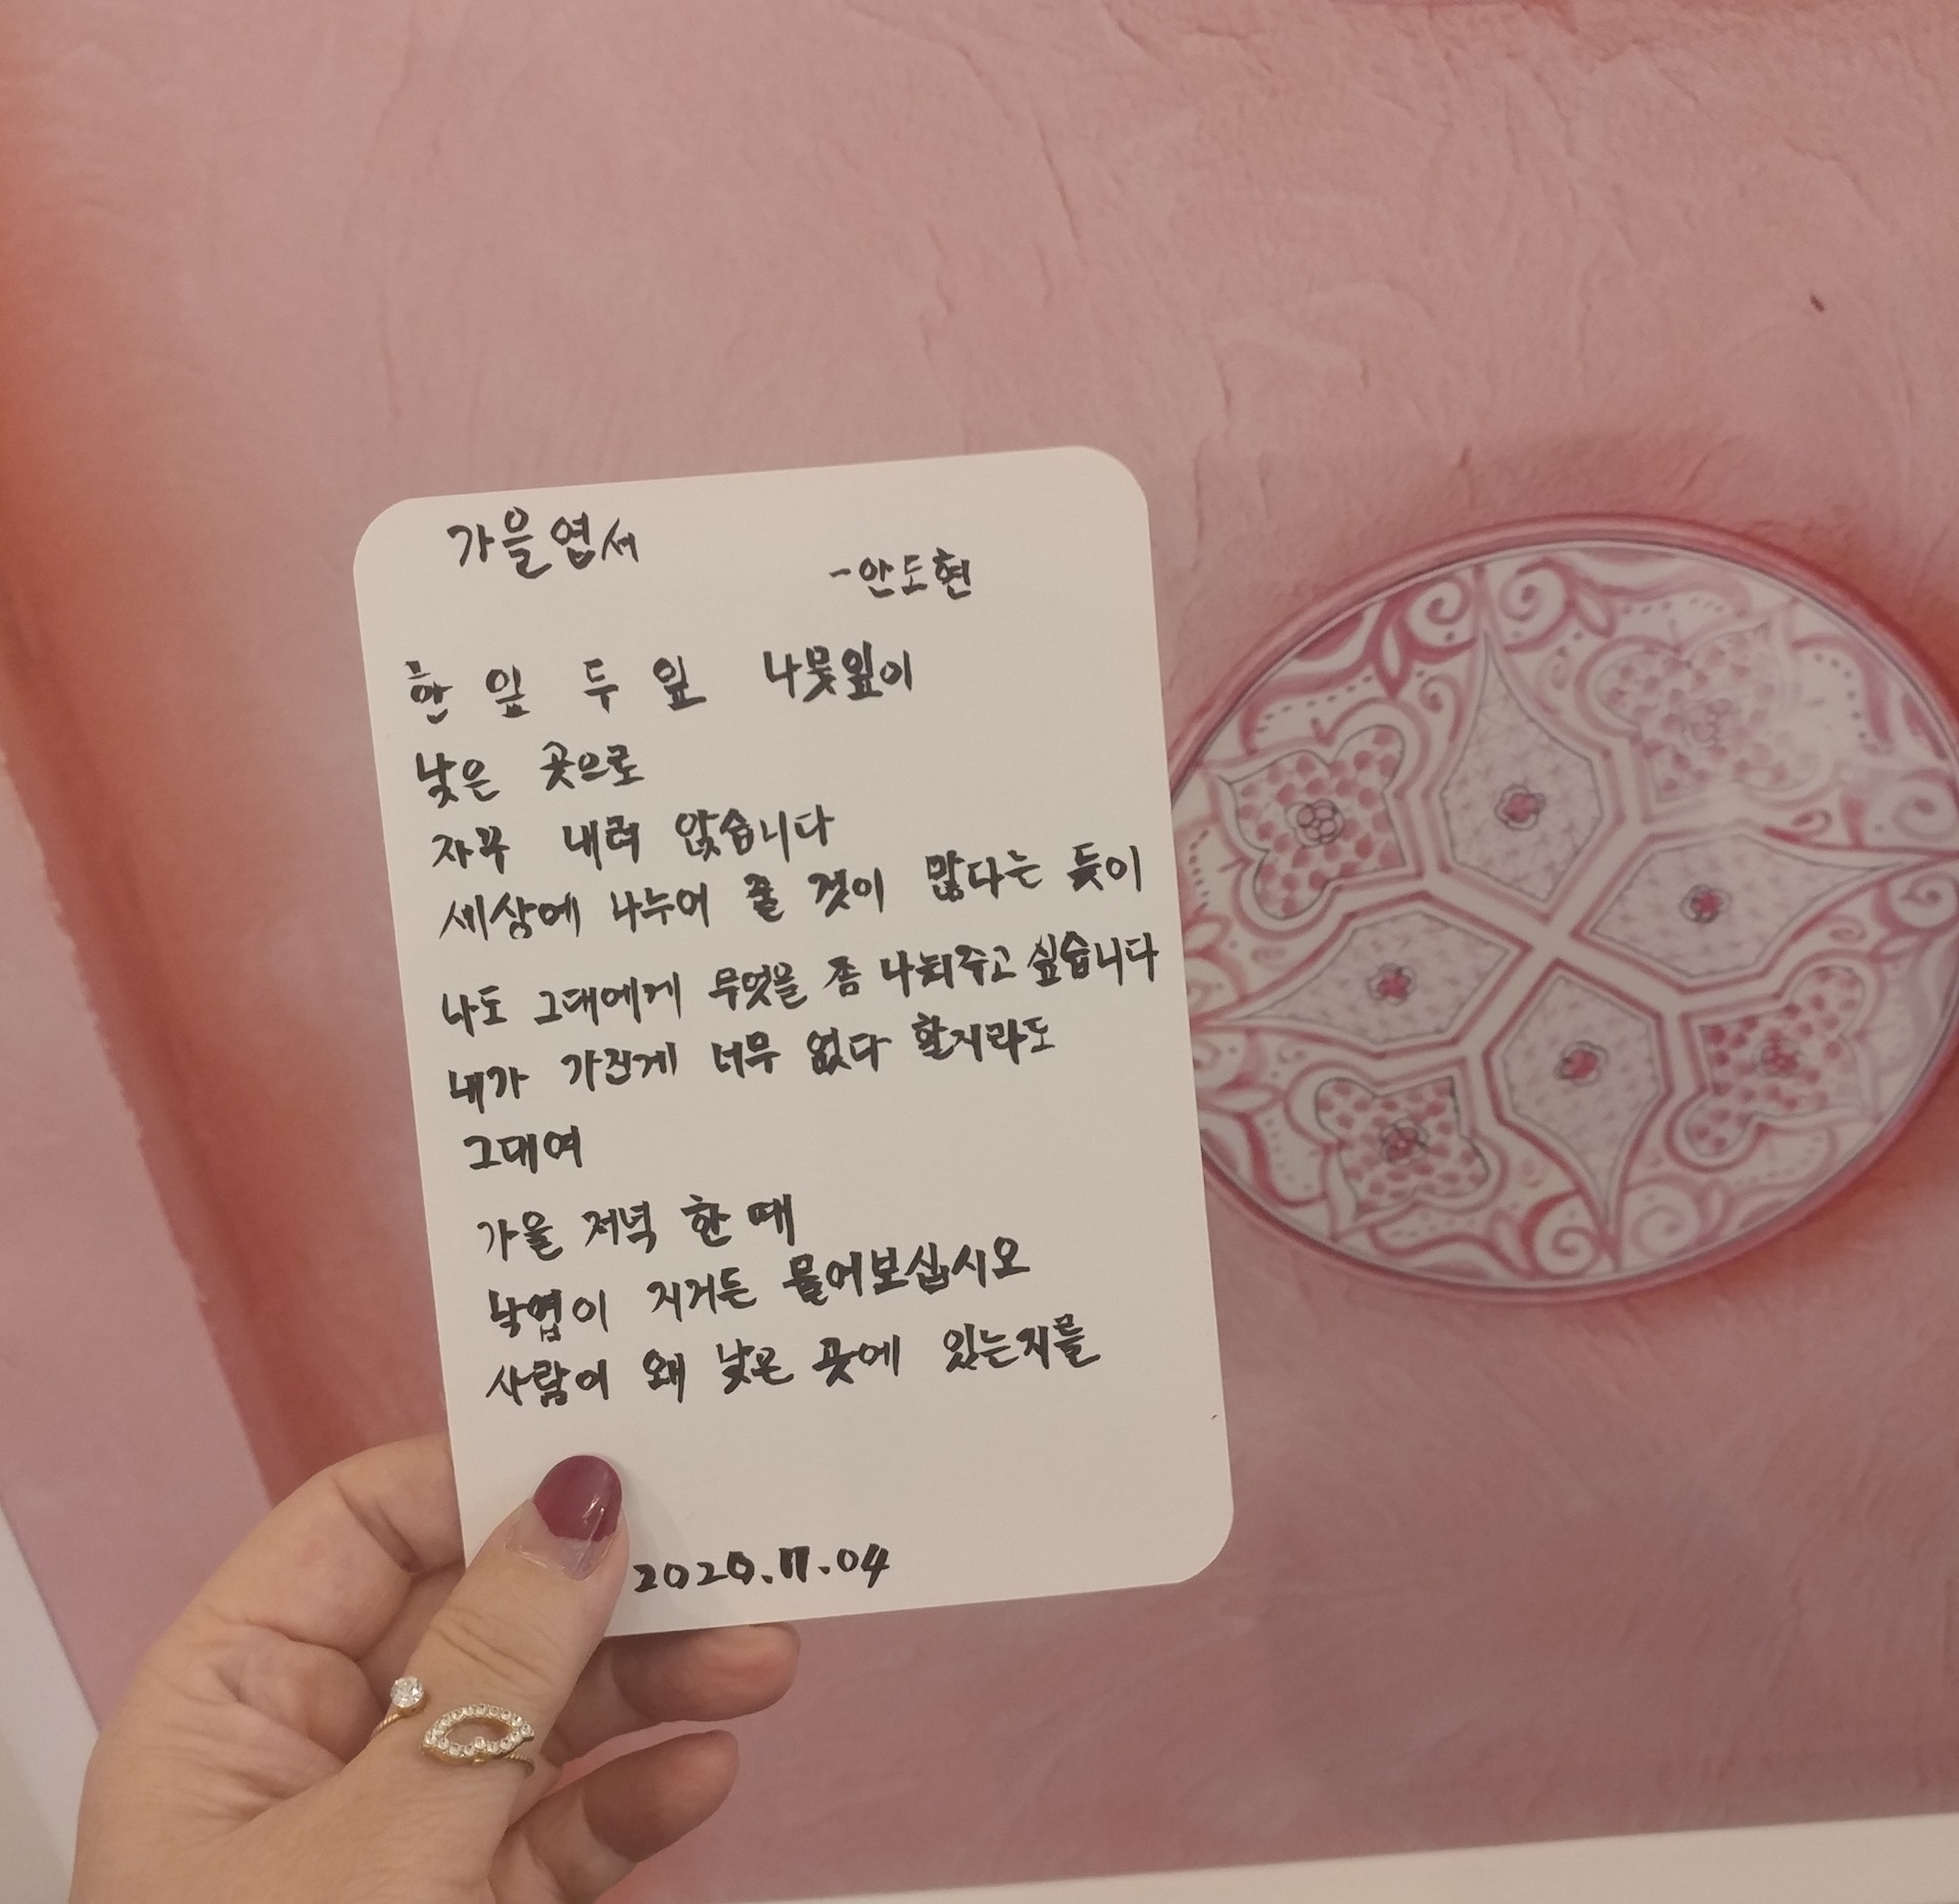 가을엽서
-안도현
한 잎 두 잎 나뭇잎이
낮은 곳으로
자꾸 내려 앉습니다
세상에 나누어 줄 것이 많다는 듯이
나도 그대에게 무엇을 좀 나눠주고 싶습니다
내가 가진게 너무 없다 할지라도
그대여
가을 저녁 한 때
낙엽이 지거든 물어보십시오
사람이 왜 낮은 곳에 있는지를
2020.11.04